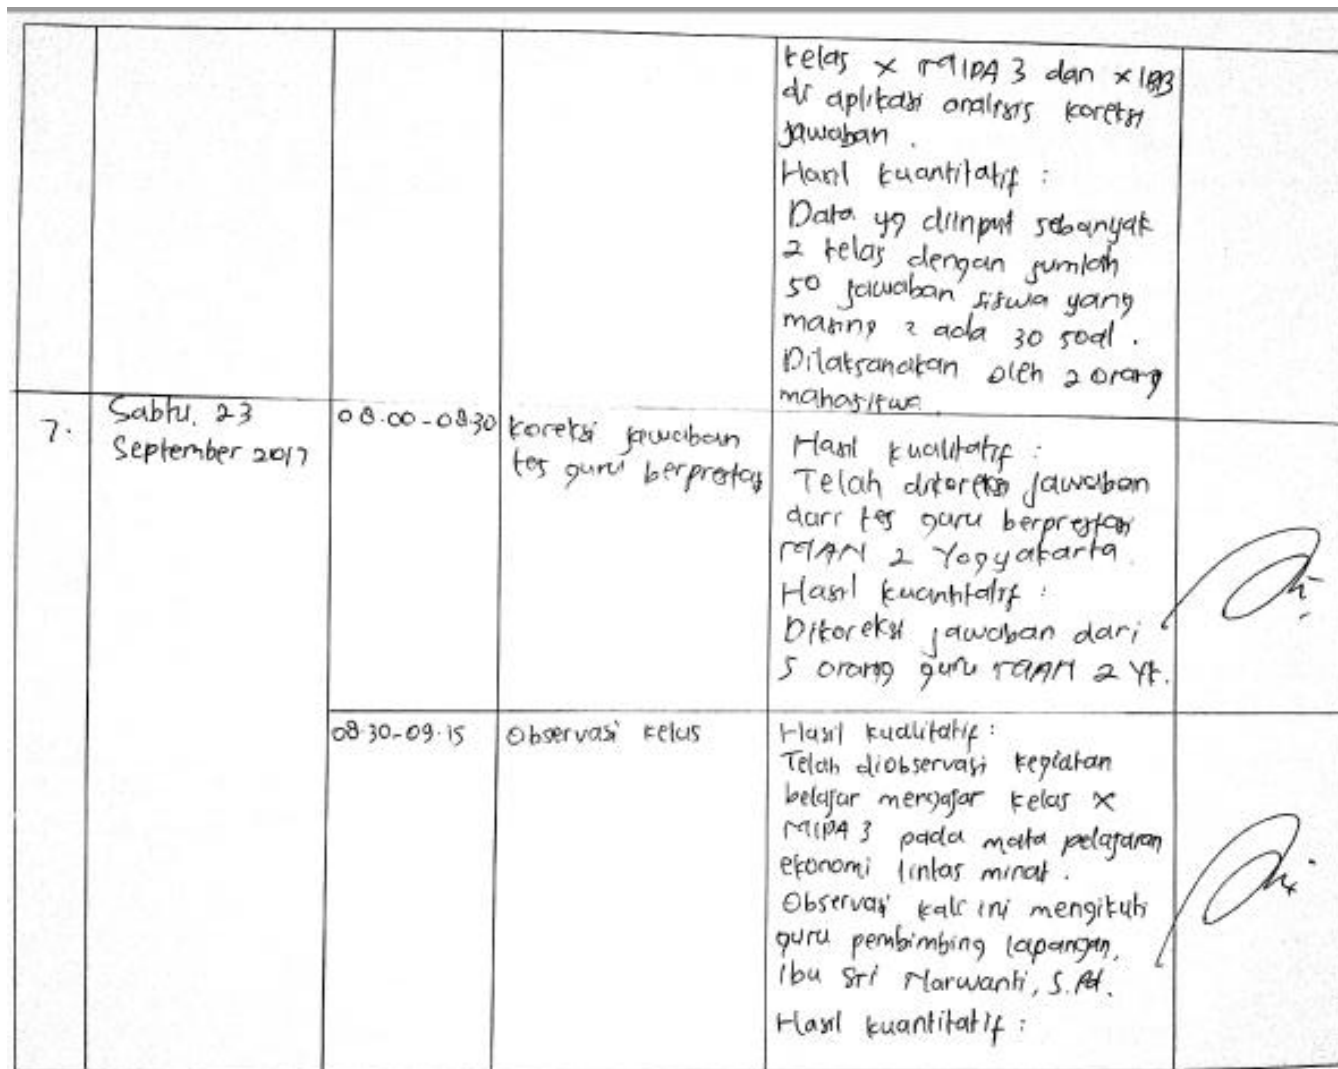 kelas X MIPA 3 dan X IBB
di aplikasi analisis koreksi
jawaban.
Hasil kuantitatif :
Data yg diinput sebanyak
2 kelas dengan jumlah
50 jawaban siswa yang
masing 2 ada 30 soal.
Dilaksanakan oleh 2 orang
mahasiswa
7.
Sabtu, 23
September 2017
08.00-08.30
koreksi jawaban
tes guru berprestasi
Hasil kualitatif :
Telah dikoreksi jawaban
dari tes guru berprestasi
MAN 2 Yogyakarta.
Hasil kuantitatif :
Dikoreksi jawaban dari
5 orang guru MAN 2 Yk.
08.30-09.15
Observasi kelas
Hasil kualitatif :
Telah diobservasi kegiatan
belajar mengajar kelas X
MIPA 3 pada mata pelajaran
ekonomi lintas minat.
Observasi kali ini mengikuti
guru pembimbing lapangan,
Ibu Sri Narwanti, S.Pd.
Hasil kuantitatif :